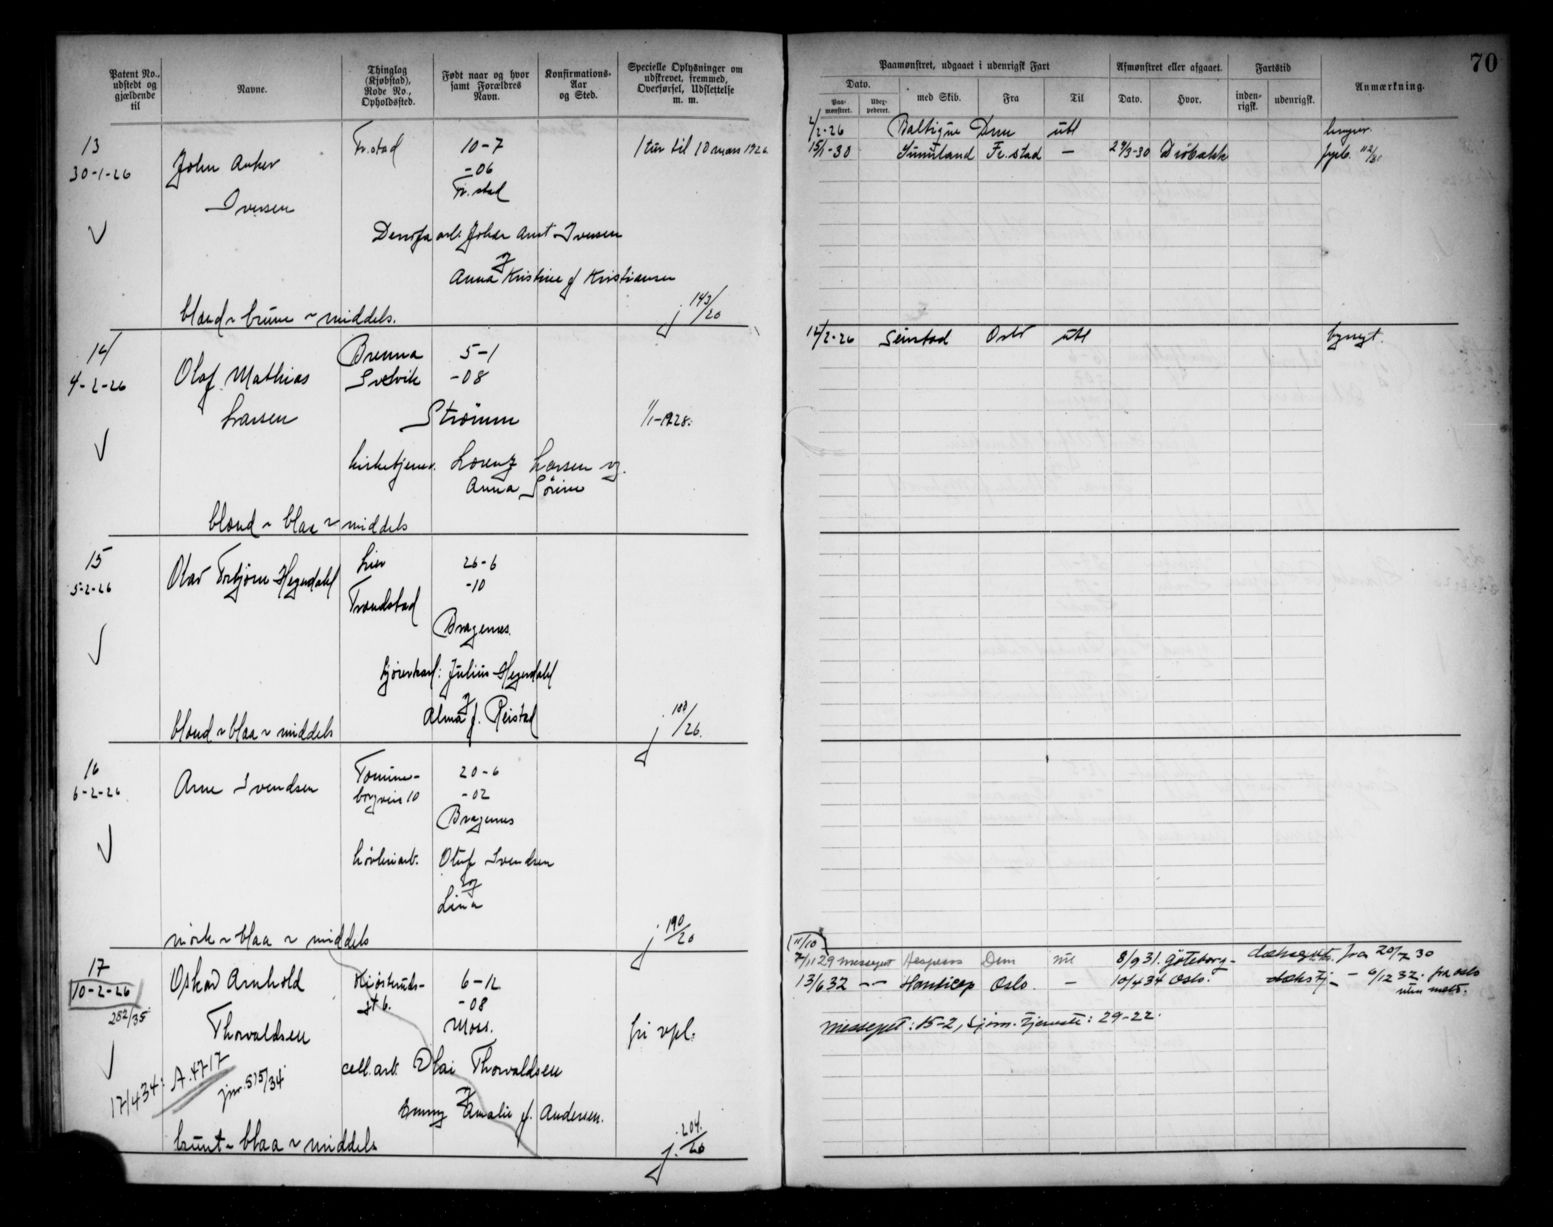 Patent No., udstedt og gjældende til
Navne.
Thinglag (Kjøbstad), Rode No., Opholdssted.
Født naar og hvor samt Forældres Navn.
Konfirmations-Aar og Sted.
Specielle Oplysninger om udskrevet, fremmed, Overførsel, Udslettelse m. m.
Paamønstret, udgaaet i udenrigsk Fart
Dato.
Paamønstret.
med Skib.
Fra
Til
Afmønstret eller afgaaet.
Dato.
Hvor.
Fartstid
inden-rigsk.
udenrigsk.
Anmærkning.
70
13
30-1-26
John Anker
Iversen
Fr.stad
10-7
-06
Fr. stad
1 tur til 10 mars 1926
Johan Arnt Iversen
og
Anna Kristine f Kristiansen
blond ~ brune ~ middels.
j 143/20
2/2-26 Baltigue Drm utl
15/1-30 Fr.stad — 29/3-30 Drøbakk
14
4-2-26
Olaf Mathias
Larsen
Brenna
Svelvik
5-1
-08
Strømm
1/1-1928.
kirketjener. Lorenz Larsen og
Anna Sørine
blond ~ blaa ~ middels
12/2-26 Oslo utl
15
5-2-26
Olav Torbjørn Hegerdahl
Lier
Trondstad
26-6
-10
Bragernes.
kjørerkarl: Julius Hegerdahl
og
Alma f. Reistad
blond ~ blaa ~ middels
j 188/26.
16
6-2-26
Arne Svendsen
Tomine-
borgvein 10
20-6
-02
Bragernes
høvleriarb. Oluf Svendsen
og
Lina
mørk ~ blaa ~ middels
j 190/26
17
10-2-26
282/35
Oskar Arnhold
Thorvaldsen
6-12
-08
Moss.
fri opl.
cell.arb. Olai Thorvaldsen
og
Emmy Amalie f. Andersen.
17/434: A.4717
jnr. 515/34
brunt ~ blaa ~ middels
j. 204/26
(11/10)
7/11 29 messegut Hesperos Drm utl 8/9 31. Göteborg - dæksgutt fra 20/7 30
13/6 32 -- Handicap Oslo — 10/4 34 Oslo. dækstj - 6/12 32. fra Oslo
messegut: 15-2, sjøm. tjeneste: 29-22.